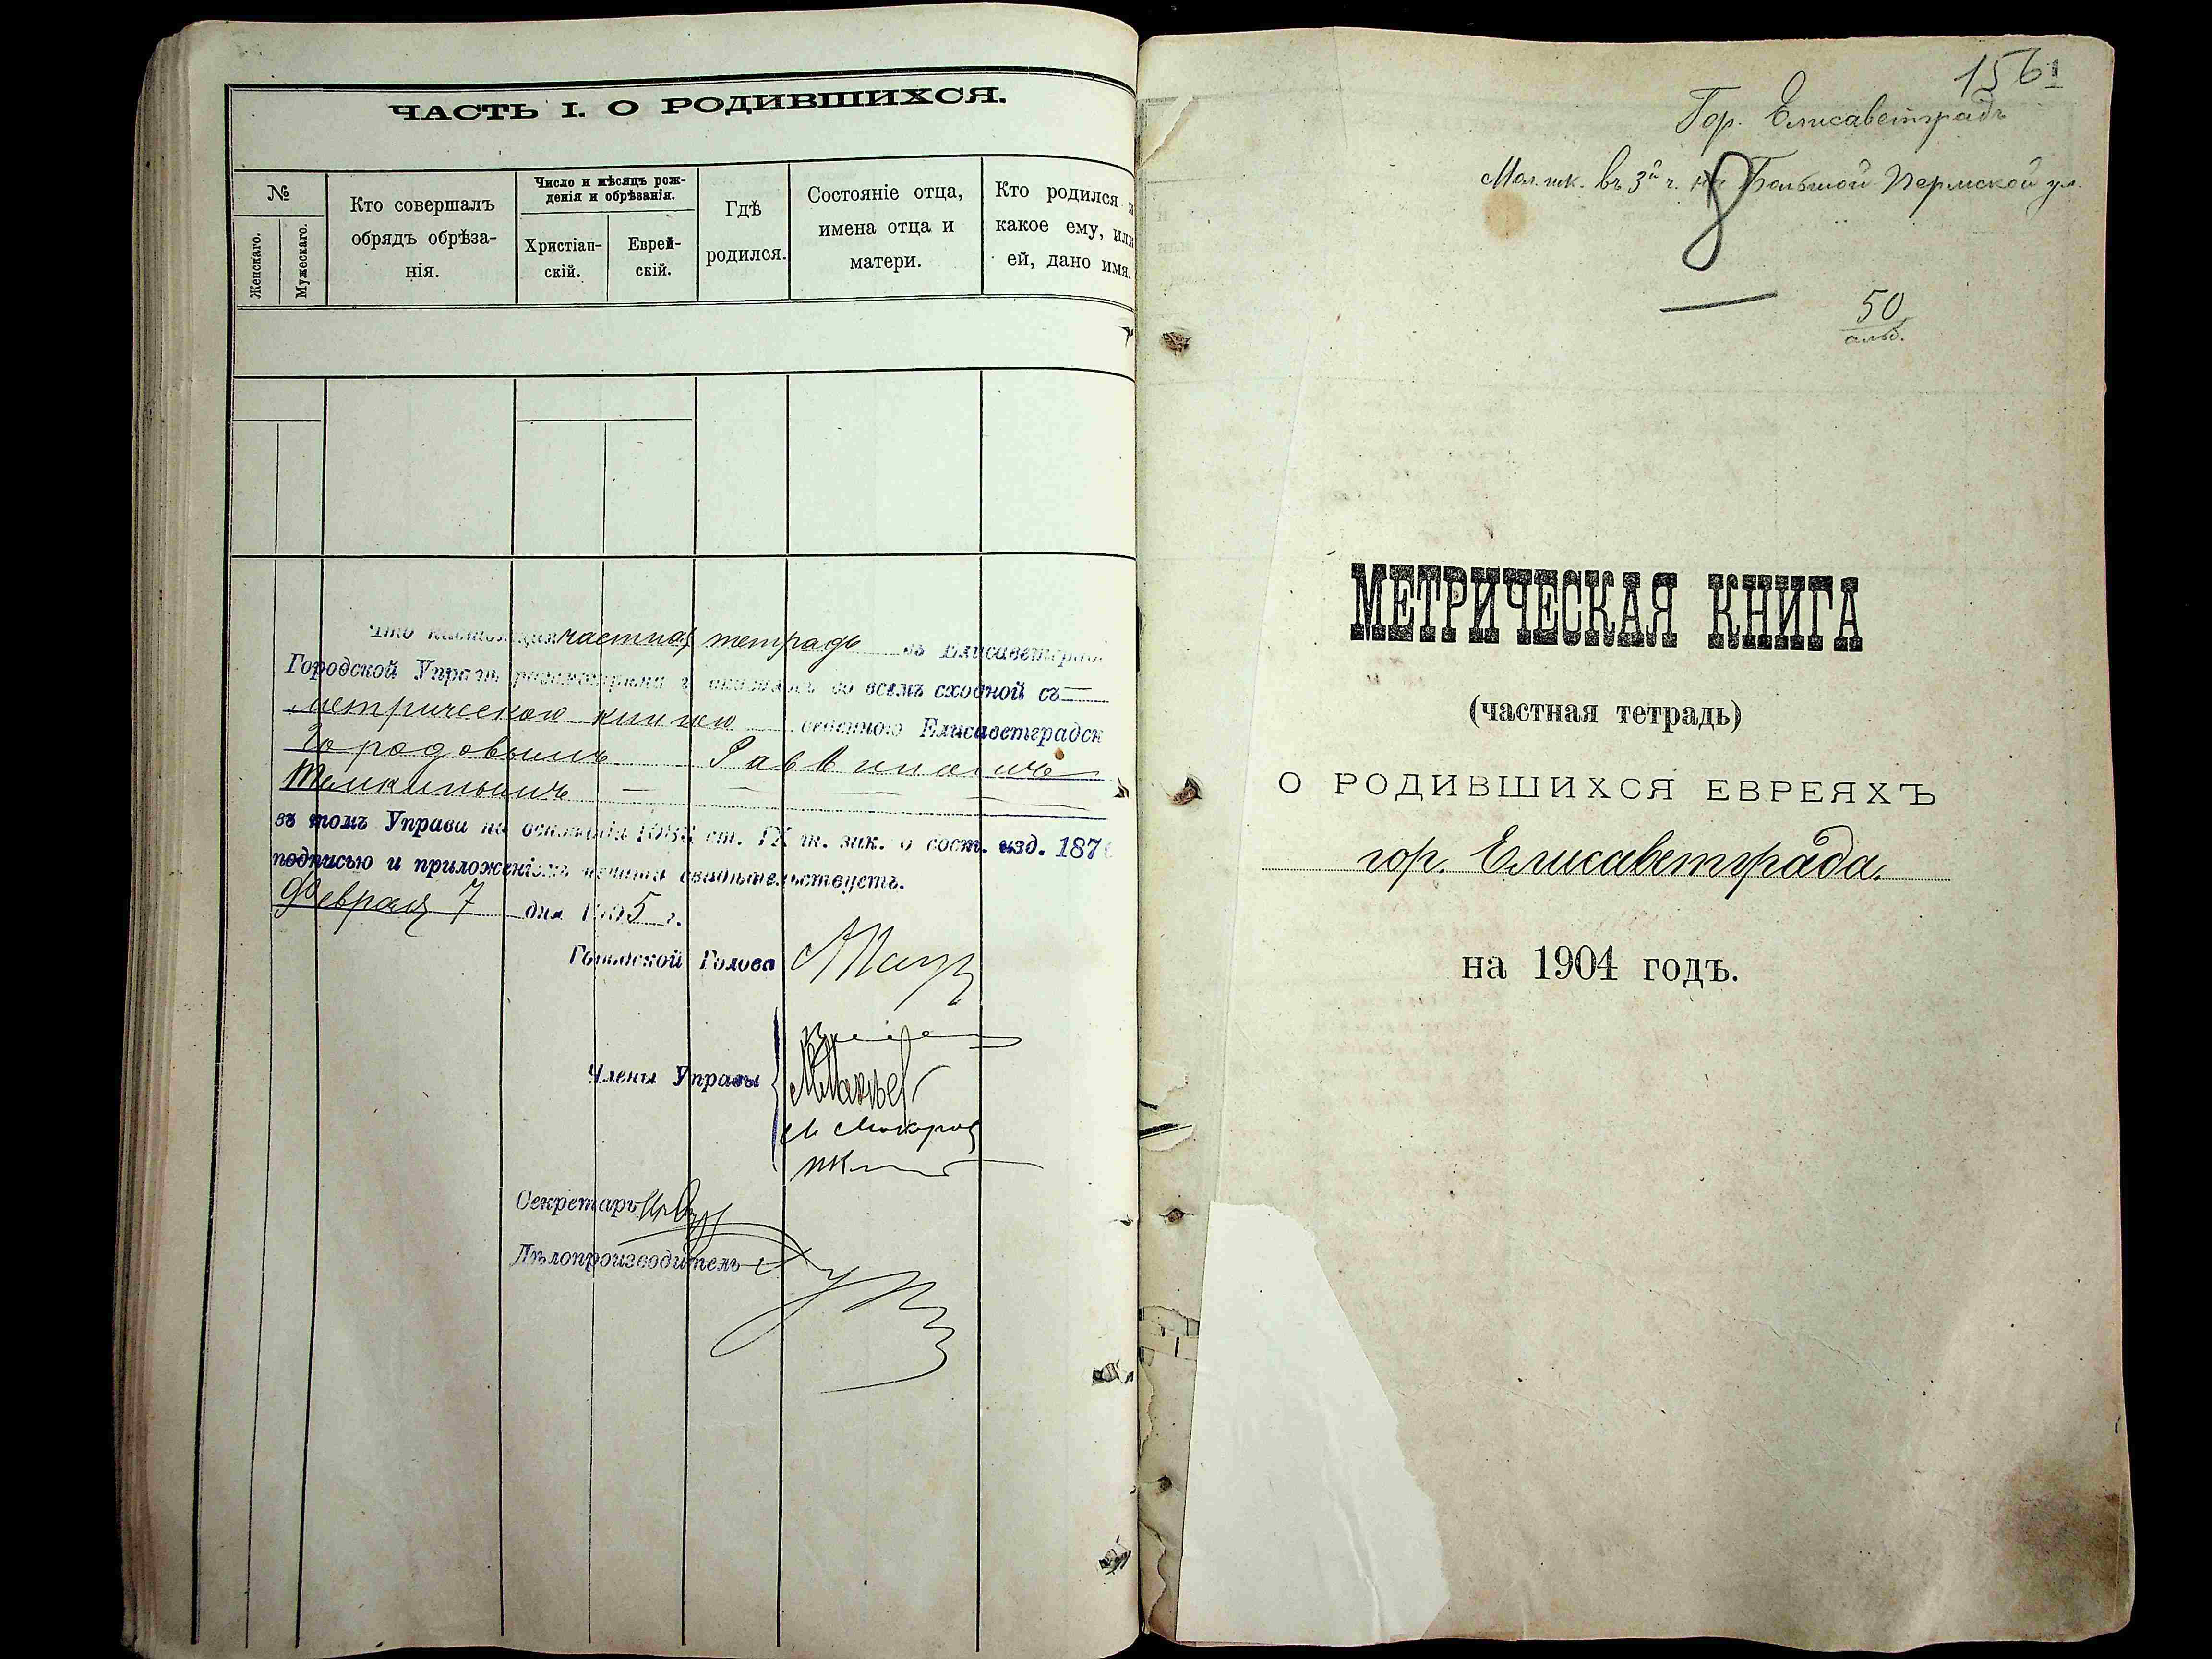 ЧАСТЬ I. О РОДИВШИХСЯ.
№
Женскаго.
Мужескаго.
Кто совершалъ
обрядъ обрѣза-
нія.
Число и мѣсяцъ рож-
денія и обрѣзанія.
Христіан-
скій.
Еврей-
скій.
Гдѣ
родился.
Состояніе отца,
имена отца и
матери.
Кто родился и
какое ему, или
ей, дано имя.
Что частная тетрадь въ Елисаветград
Городской Управѣ во всемъ сходной съ
метрическою книгою веденною Елисаветградск
Городовымъ Раввиномъ
Темкинымъ
въ томъ Управа на основаніи ст. IX т. зак. о сост. изд. 1876
подписью и приложеніемъ печати свидѣтельствуетъ.
Февраля 7 дня 1905 г.
Городской Голова
Члены Управы
Секретарь
Дѣлопроизводитель
156
1
Гор. Елисаветградъ
Мол. шк. въ 3й ч. на Большой Пермской ул.
8
50
МЕТРИЧЕСКАЯ КНИГА
(частная тетрадь)
О РОДИВШИХСЯ ЕВРЕЯХЪ
гор. Елисаветграда.
на 1904 годъ.